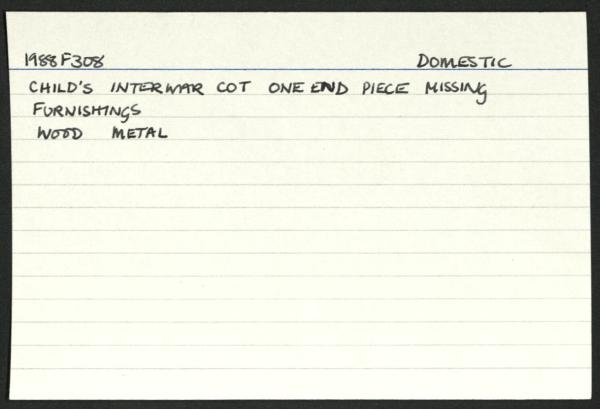 1988F308 DOMESTIC
CHILD'S INTERWAR COT ONE END PIECE MISSING
FURNISHINGS
WOOD METAL